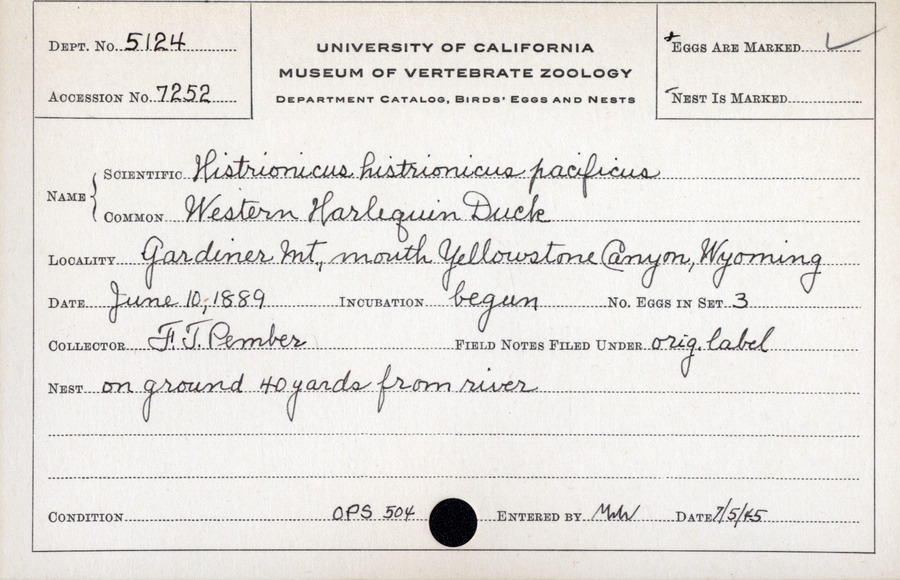 Dept. No. 5124
Accession No. 7252
UNIVERSITY OF CALIFORNIA
MUSEUM OF VERTEBRATE ZOOLOGY
Department Catalog, Birds' Eggs and Nests
Eggs Are Marked ✓
Nest Is Marked
Name
Scientific Histrionicus histrionicus pacificus
Common Western Harlequin Duck
Locality Gardiner Mt., mouth Yellowstone Canyon, Wyoming
Date June 10, 1889 Incubation begun No. Eggs in Set 3
Collector F. T. Pember Field Notes Filed Under orig. label
Nest on ground 40 yards from river
Condition OPS 504 Entered by Date 7/5/45